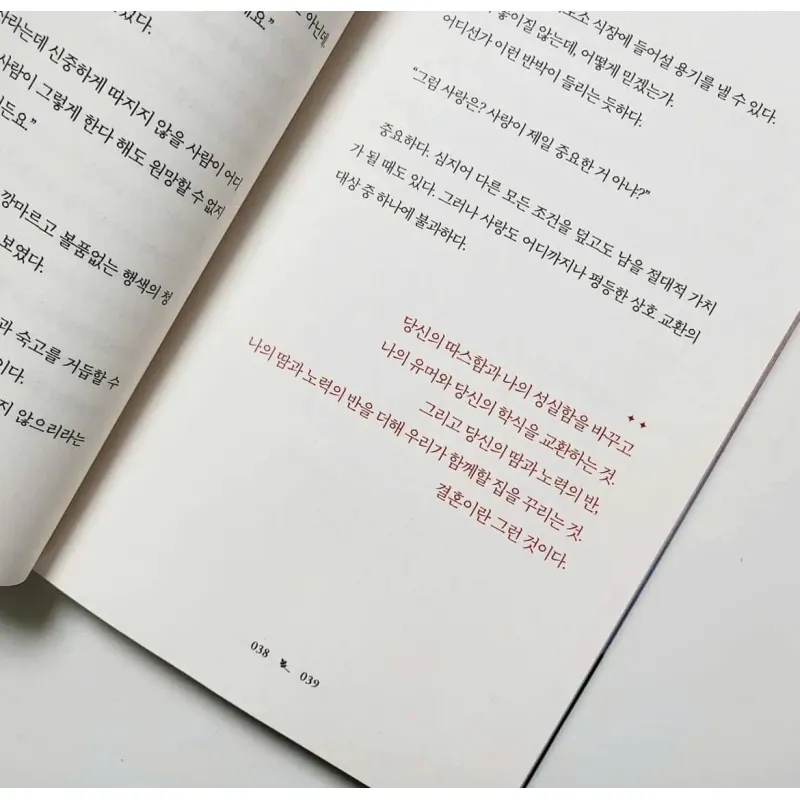 아닌데,
있다. 해요."
사라는데 신중하게 따지지 않을 사람이 어디
사람이 그렇게 한다 해도 원망할 수 없지
든요."
깡마르고 볼품없는 행색의 청
보였다.
과 숙고를 거듭할 수
이다.
지 않으리라는
식장에 들어설 용기를 낼 수 있다.
놓이질 않는데, 어떻게 믿겠는가.
어디선가 이런 반박이 들리는 듯하다.
"그럼 사랑은? 사랑이 제일 중요한 거 아냐?"
중요하다. 심지어 다른 모든 조건을 덮고도 남을 절대적 가치
가 될 때도 있다. 그러나 사랑도 어디까지나 평등한 상호 교환의
대상 중 하나에 불과하다.
당신의 따스함과 나의 성실함을 바꾸고
나의 유머와 당신의 학식을 교환하는 것.
그리고 당신의 땀과 노력의 반,
나의 땀과 노력의 반을 더해 우리가 함께할 집을 꾸리는 것.
결혼이란 그런 것이다.
038 039